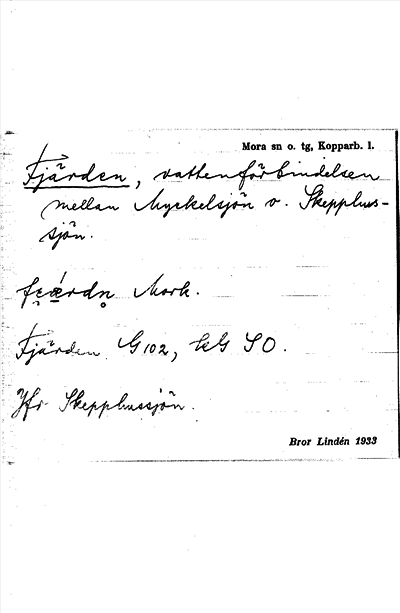 Mora sn o. tg, Kopparb. l.
Fjärden, vattenförbindelsen
mellan Myckelsjön o. Skepphus-
sjön.
Mork.
Fjärden G102, SO.
Jfr Skepphussjön.
Bror Lindén 1933